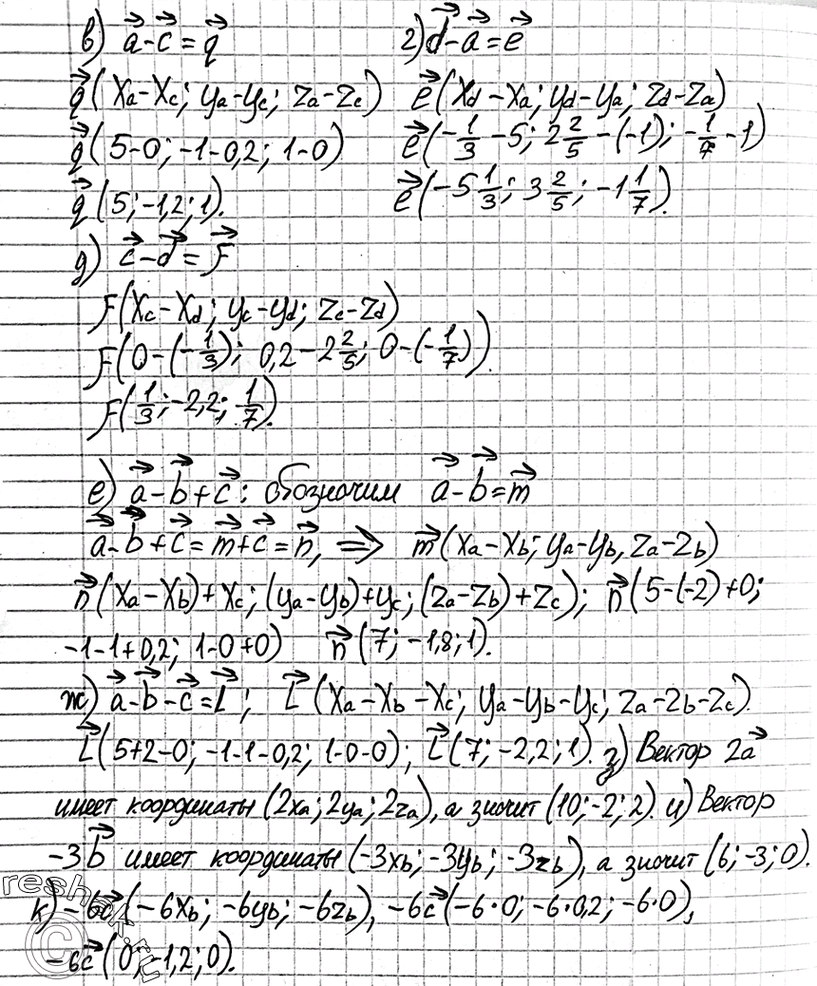 в) a⃗-c⃗=q⃗ г) d⃗-a⃗=e⃗
q⃗(xₐ-x_c; yₐ-y_c; zₐ-z_c) e⃗(x_d-xₐ; y_d-yₐ; z_d-zₐ)
q⃗(5-0; -1-0,2; 1-0) e⃗(-1/3-5; 2 2/5-(-1); -1/7-1)
q⃗(5; -1,2; 1). e⃗(-5 1/3; 3 2/5; -1 1/7).
д) c⃗-d⃗=F⃗
F(x_c-x_d; y_c-y_d; z_c-z_d)
F(0-(-1/3); 0,2-2 2/5; 0-(-1/7)).
F(1/3; -2,2; 1/7).
е) a⃗-b⃗+c⃗: обозначим a⃗-b⃗=m⃗
a⃗-b⃗+c⃗=m⃗+c⃗=n⃗, ⇒ m⃗(xₐ-x_b; yₐ-y_b, zₐ-z_b)
n⃗(xₐ-x_b)+x_c; (yₐ-y_b)+y_c; (zₐ-z_b)+z_c); n⃗(5-(-2)+0;
-1-1+0,2; 1-0+0) n⃗(7; -1,8; 1).
ж) a⃗-b⃗-c⃗=L⃗; L⃗(xₐ-x_b-x_c; yₐ-y_b-y_c; zₐ-z_b-z_c).
L⃗(5+2-0; -1-1-0,2; 1-0-0); L⃗(7; -2,2; 1). з) Вектор 2a⃗
имеет координаты (2xₐ; 2yₐ; 2zₐ), а значит (10; -2; 2). и) Вектор
-3b⃗ имеет координаты (-3x_b; -3y_b; -3z_b), а значит (6; -3; 0).
к) -6c⃗(-6x_b; -6y_b; -6z_b), -6c⃗(-6·0; -6·0,2; -6·0),
-6c⃗(0; -1,2; 0).
reshak.ru
©